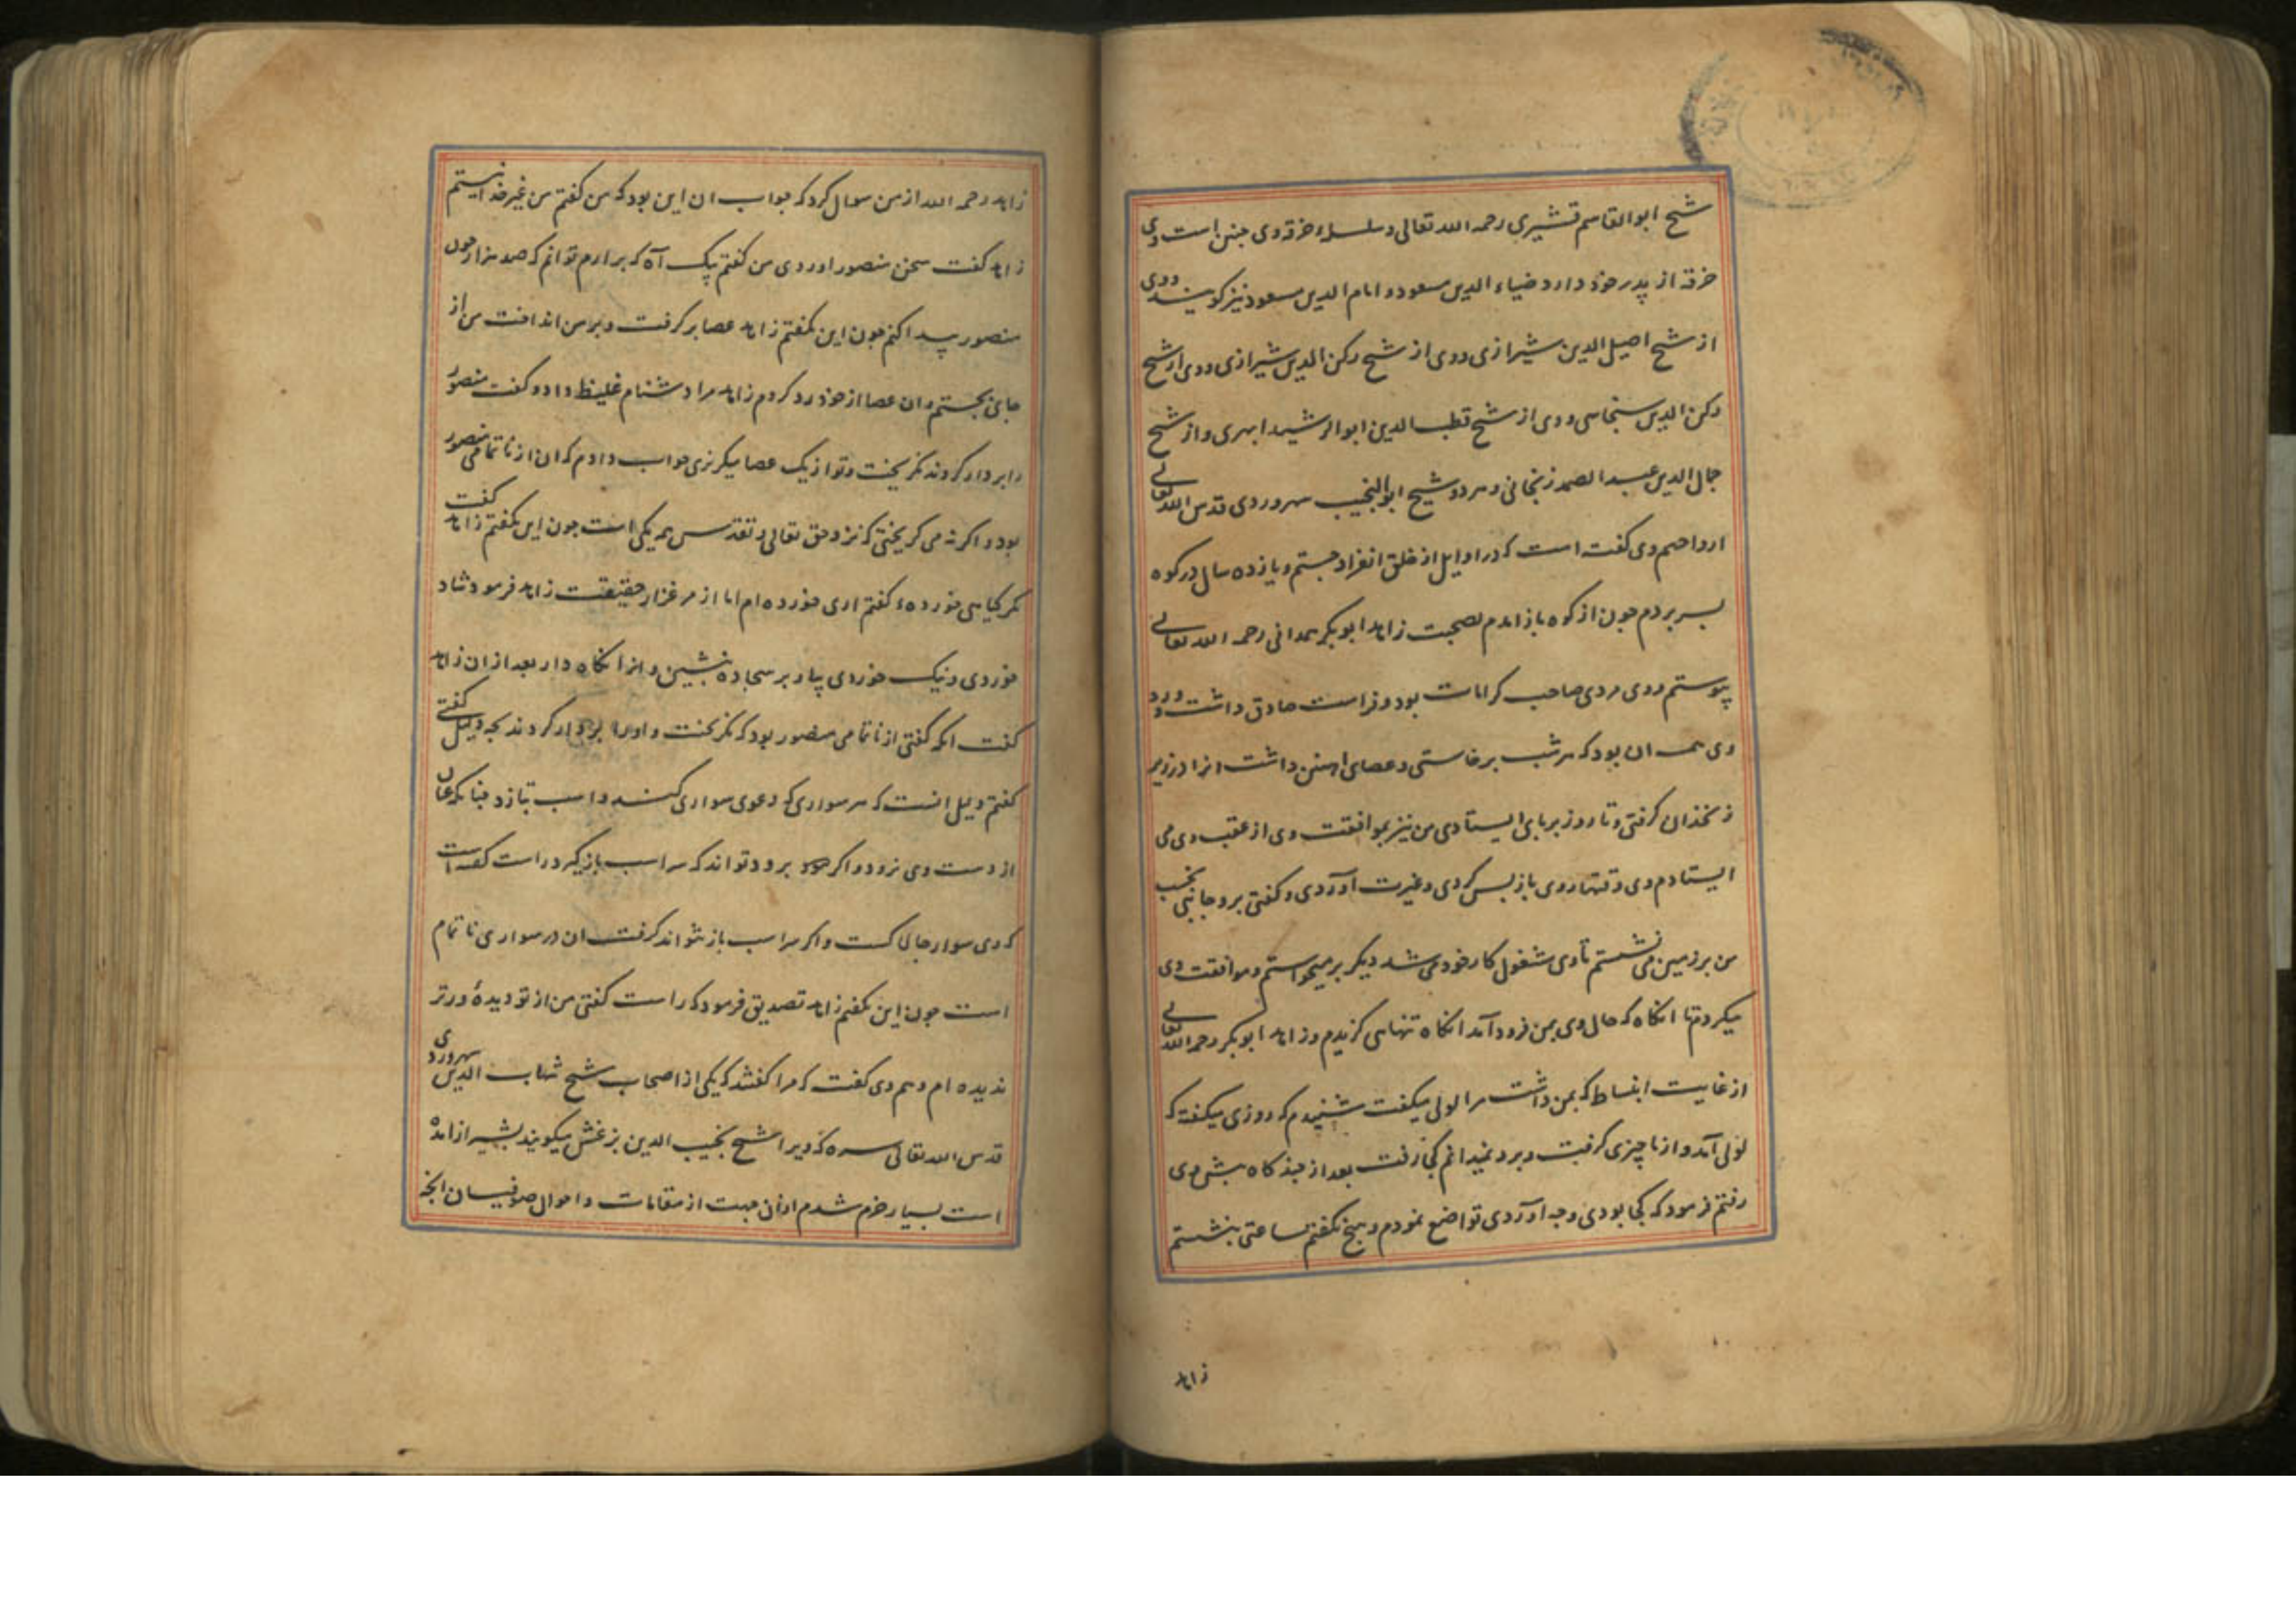 شیخ ابوالقاسم قشیری رحمه الله تعالی و سلسلهٔ خرقه وی چنین است وی
خرقه از پدر خود دارد ضیاء الدین مسعود و امام الدین مسعود نیز گویند و وی
از شیخ اصیل الدین شیرازی و وی از شیخ رکن الدین شیرازی و وی از شیخ
رکن الدین سنجاسی و وی از شیخ قطب الدین ابوالرشید ابهری و از شیخ
جمال الدین عبد الصمد زنجانی و هر دو شیخ ابوالنجیب سهروردی قدس الله تعالی
ارواحهم وی گفته است که در اوایل از خلق انفراد جستم و یازده سال در کوه
بسر بردم چون از کوه باز امدم بصحبت زاهد ابوبکر همدانی رحمه الله تعالی
پیوستم و وی مردی صاحب کرامات بود و فراست صادق داشت و ورد
وی همه ان بود که هر شب برخاستی و عصای اهنین داشت انرا در زیر
زنخدان گرفتی و تا روز بر پای ایستادی من نیز بموافقت وی از عقب وی می
ایستادم وی وقتها روی باز پس کردی و غیرت آوردی و گفتی برو جایی بخسب
من بر زمین می نشستم تا وی مشغول کار خود می شد دیگر برمیخواستم و موافقت وی
میکردم تا انگاه که حال وی بمن فرود آمد انگاه تنهایی گزیدم و زاهد ابوبکر رحمه الله تعالی
از غایت انبساط که بمن داشت مرا لولی میگفت شنیدم که روزی میگفته که
لولی آمد و از ما چیزی گرفت و برد نمیدانم کجا رفت بعد از چندگاه پیش وی
رفتم فرمود که کجا بودی و چه آوردی تواضع نمودم و هیچ نگفتم ساعتی بنشستم
زاهد
زاهد رحمه الله از من سوال کرد که جواب ان این بود که من گفتم من غیر خدا نیستم
زاهد گفت سخن منصور اوردی من گفتم بیک آه که برارم توانم که صد هزار چون
منصور پیدا کنم چون این بگفتم زاهد عصا برگرفت و بر من انداخت من از
جای بجستم و ان عصا از خود رد کردم زاهد مرا دشنام غلیظ داد و گفت منصور
را بردار کردند نگریخت و تو از یک عصا میگریزی جواب دادم که ان از ناتمامی منصور
بود و اگر نه می گریختی که نزد حق تعالی و تقدس همه یکی است چون این بگفتم زاهد گفت
مگر گیاهی خورده گفتم اری خورده ام اما از مرغزار حقیقت زاهد فرمود شاد
خوردی و نیک خوردی بیا و بر سجاده بنشین و انرا نگاه دار بعد از ان زاهد
گفت انکه گفتی از ناتمامی منصور بود که نگریخت و او را بردار کردند بچه دلیل گفتی
گفتم دلیل انست که هر سواری که دعوی سواری کند و اسب بتازد چنانکه عنان
از دست وی نرود و اگر برود تواند که سر اسب باز گیرد راست گفته است
که وی سوار چالاکست و اگر سر اسب باز نتواند گرفت ان در سواری ناتمام
است چون این بگفتم زاهد تصدیق فرمود که راست گفتی من از تو دیده ورتر
ندیده ام و هم وی گفت که مرا گفتند که یکی از اصحاب شیخ شهاب الدین سهروردی
قدس الله تعالی سره که ویرا شیخ نجیب الدین بزغش میگویند بشیراز امده
است بسیار خرم شدم از ان جهت از مقامات و احوال صوفیان انچه